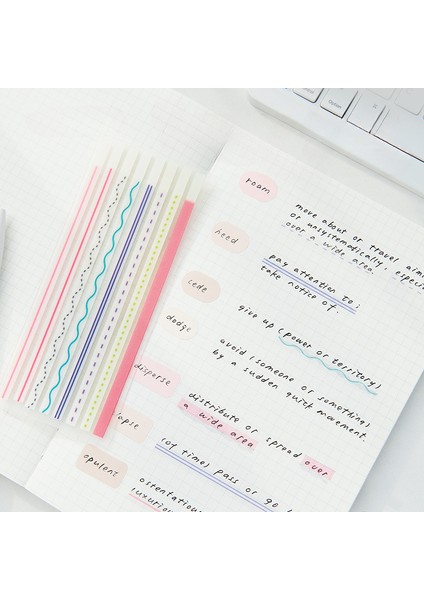 option
roam
move about or travel
or unsystematically,
over a wide area
heed
pay attention to;
take notice of.
cede
give up (power or territory)
dodge
avoid (someone or something)
by a sudden quick movement.
disperse
distribute or spread over
a wide area
lapse
(of time) pass or go
opulent
ostentatious
luxurious